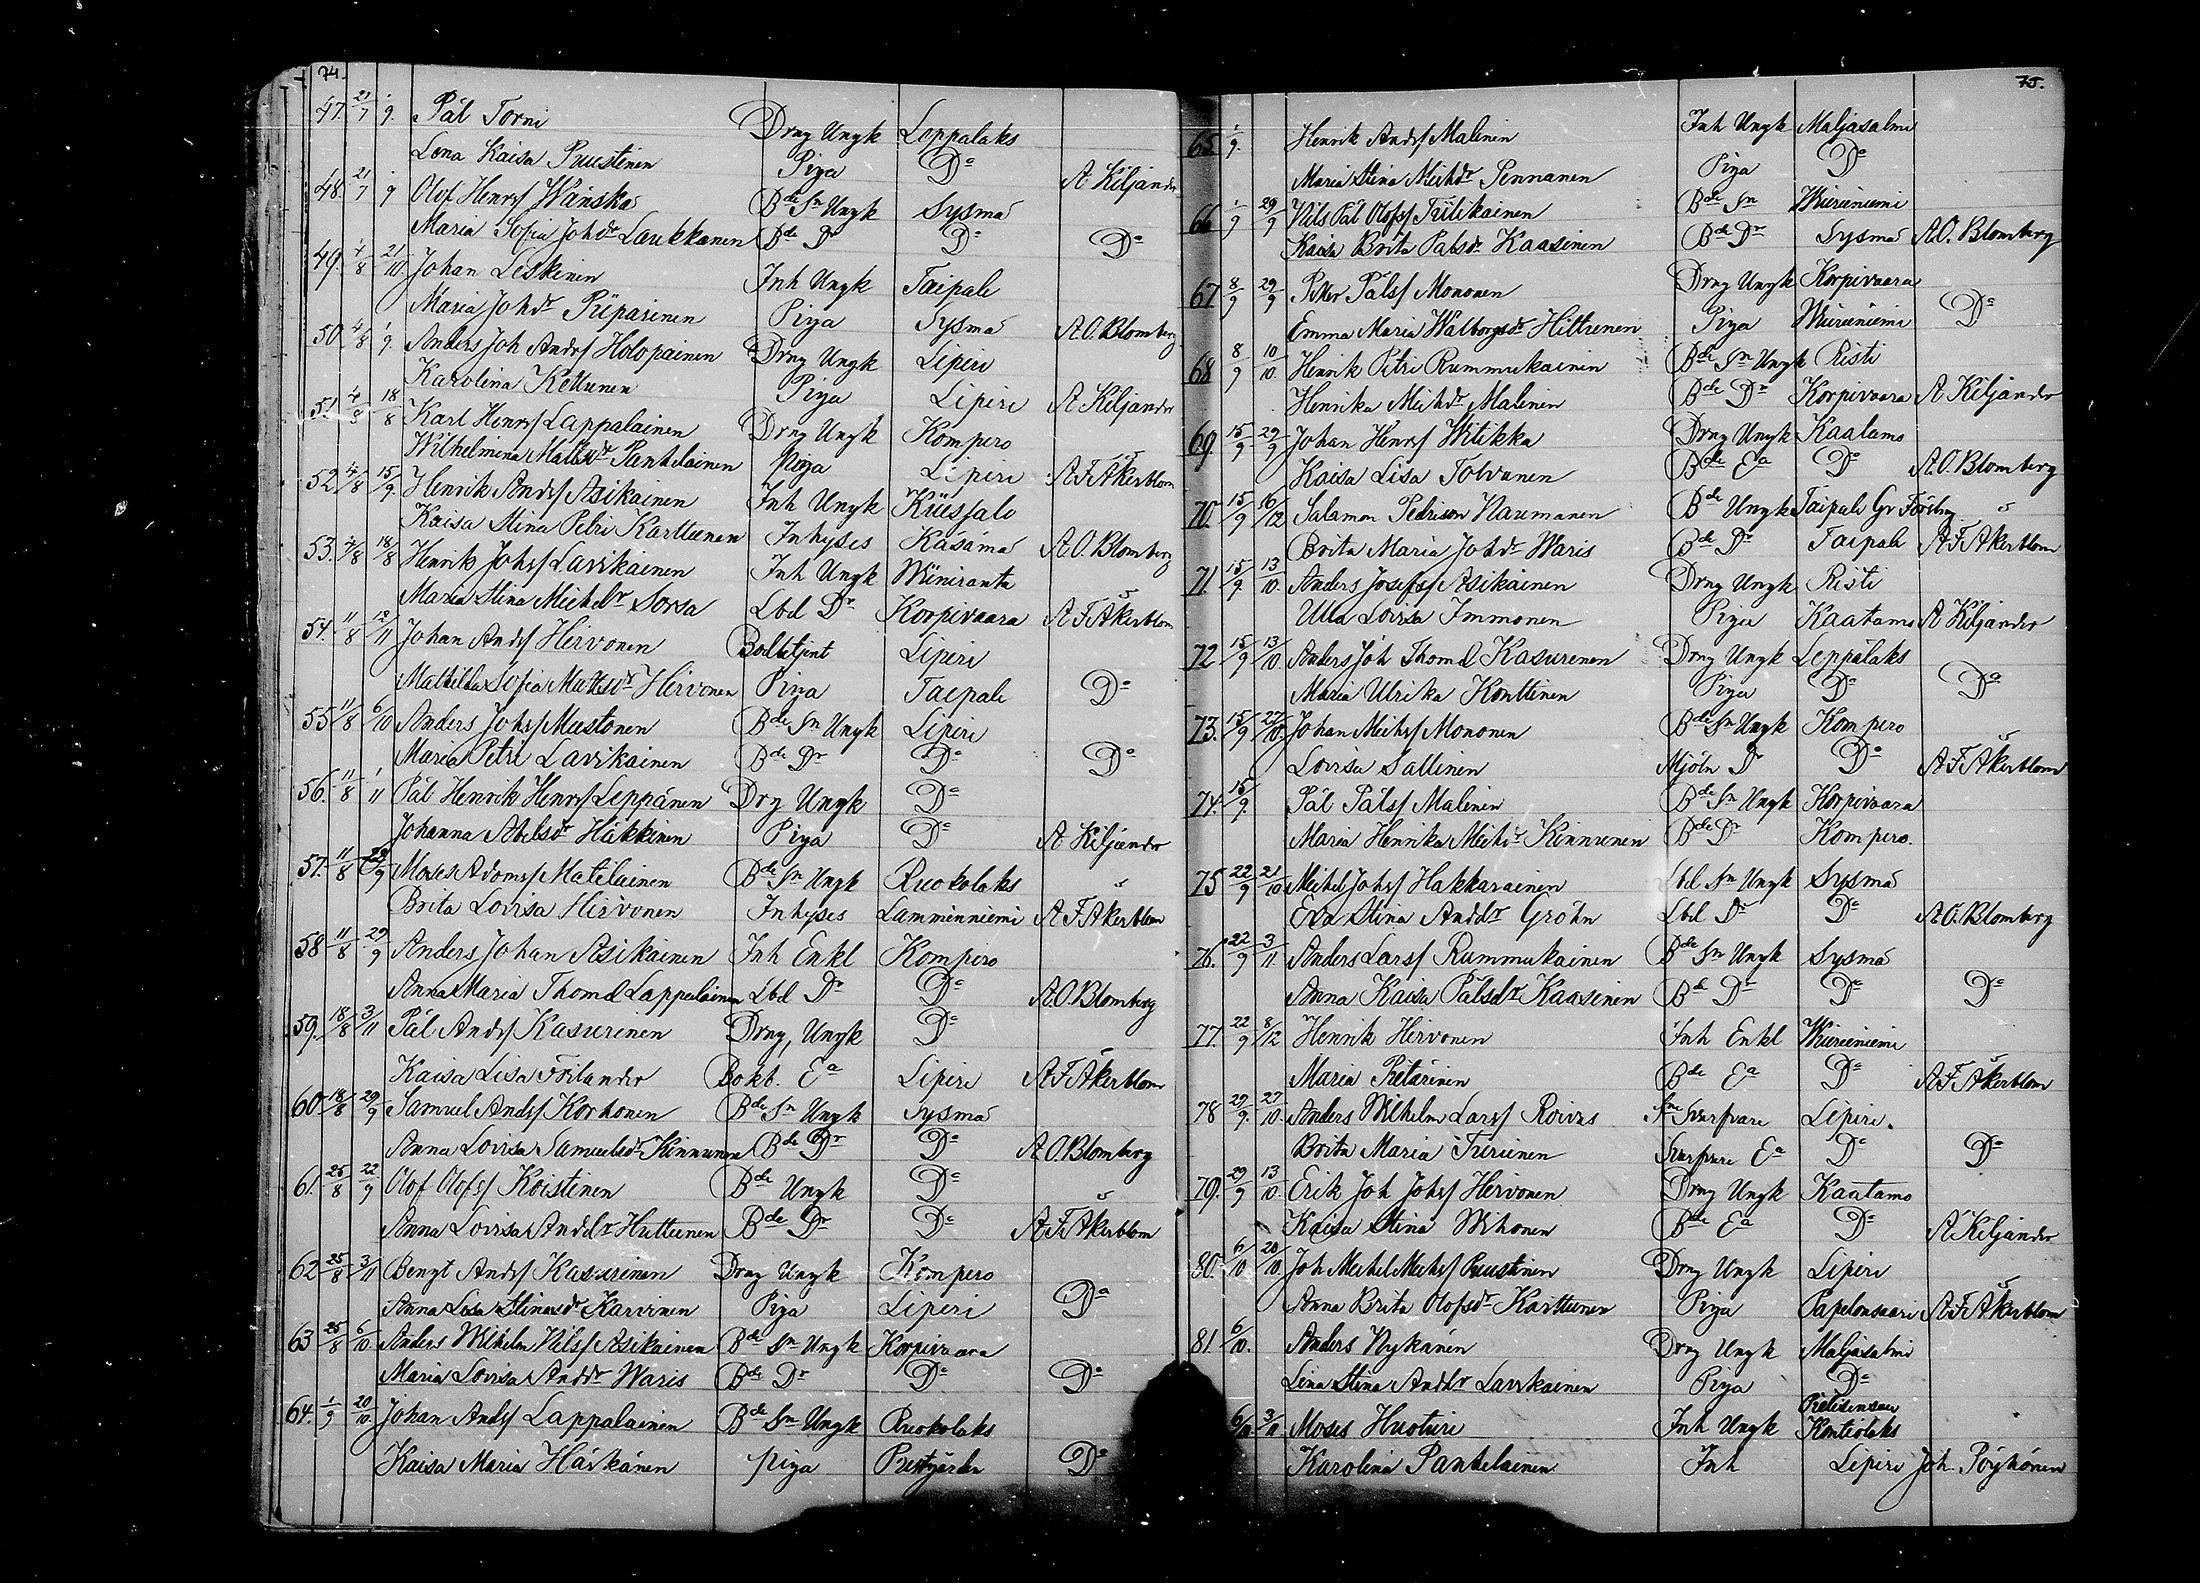 74.
47. 21/7 1/9. Pål Torni Drng Ungk Leppälaks
Lena Kaisa Puustinen Piga Do A Kiljander
48. 21/7 1/9 Olof Henrsf Wänskä Bde Sn Ungk Sysmä
Maria Sofia Johdr Laukkanen Bde Dr Do Do
49. 4/8 21/10. Johan Leskinen Inh Ungk Taipale
Maria Johdr Piiparinen Piga Sysmä A.O. Blomberg
50. 4/8 1/9. Anders Joh Andrsf Holopainen Drng Ungk Liperi
Karolina Kettunen Piga Liperi A Kiljander
51. 4/8 18/8 Karl Henrsf Lappalainen Drng Ungk Kompero
Wilhelmina Mattsdr Pantelainen Piga Liperi A F Åkerblom
52 4/8 15/9. Henrik Andsf Asikainen Inh Ungk Kiiesjalo
Kaisa Stina Petri Karttunen Inhyses Käsämä A O. Blomberg
53. 4/8 18/8 Henrik Johsf Lavikainen Inh Ungk Wiiniranta
Maria Stina Michelr Sorsa Lbd Dr Korpivaara A F Åkerblom
54. 11/8 12/11 Johan Andsf Hirvonen Liperi
Mathilda Sofia Mattsdr Hirvonen Piga Taipale Do
55 11/8 6/10 Anders Johsf Mustonen Bde Sn Ungk Liperi
Maria Petri Lavikainen Bde Dr Do Do
56. 11/8 1/11 Pål Henrik Henrsf Leppänen Drg Ungk Do
Johanna Abelsdr Häkkinen Piga Do A Kiljander
57. 11/8 29/9 Moses Adamsf Matilainen Bde Sn Ungk Ruokolaks
Brita Lovisa Hirvonen Inhyses Lamminniemi A F. Åkerblom
58 11/8 29/9 Anders Johan Asikainen Inh Enkl Kompero
Anna Maria Thomd Lappalainen Lbd Dr Do A.O. Blomberg
59. 18/8 3/11 Pål Andsf Kasurinen Drng, Ungk Do
Kaisa Lisa Frilander Bokb. Ea Liperi A F Åkerblom
60 18/8 29/9 Samuel Andsf Korhonen Bde Sn Ungk Sysmä
Anna Lovisa Samuelsdr Kinnunen Bde Dr Do A O. Blomberg
61. 25/8 22/9 Olof Olofsf Koistinen Bde Ungk Do
Anna Lovisa Anddr Huttunen Bde Dr Do A F. Åkerblom
62 25/8 3/11 Bengt Andsf Kasurinen Drng Ungk Kompero
Anna Lisa Stinasdr Karvinen Piga Liperi Do
63 25/8 6/10. Anders Wilhelm Nilssf Asikainen Bde Sn Ungk Korpivaara
Maria Lovisa Anddr Waris Bde Dr Do Do
64. 1/9 20/10. Johan Andsf Lappalainen Bde Sn Ungk Ruokolaks
Kaisa Maria Härkänen piga Prestgården Do
75.
65. 1/9. Henrik Andsf Malinen Inh Ungk Maljasalmi
Maria Stina Michdr Pennanen Piga Do
66 1/9 29/9 Nils Pål Olofsf Tiilikainen Bde Sn Wiiriniemi
Kaisa Brita Pålsdr Kaasinen Bde Dr Sysmä A.O. Blomberg
67. 8/9 29/9 Petter Pålsf Mononen Drng Ungk Korpivaara
Emma Maria Walborgsdr Hiltunen Piga Wiiriniemi Do
68 8/9 10/10. Henrik Petri Rummukainen Bde Sn Ungk Risti
Henrika Michdr Malinen Bde Dr Korpivaara A Kiljander
69. 15/9 29/9 Johan Henrsf Wilikka Drng Ungk Kaatamo
Kaisa Lisa Tolvanen Bde Ea Do A.O. Blomberg
70. 15/9 16/12 Salamon Pedrison Naumanen Bde Ungk Taipale Gr Försmg
Brita Maria Johdr Waris Bde Dr Taipale A F Åkerblom
71. 15/9. 13/10. Anders Josefsf Asikainen Drng Ungk Risti
Ulla Lovisa Immonen Piga Kaatamo A Kiljander
72 15/9 13/10. Anders Joh Thomd Kasurenen Drng Ungk Leppälaks
Maria Ulrika Konttinen Piga Do Do
73. 15/9 27/10 Johan Michsf Mononen Bde Sn Ungk Kompero
Lovisa Sallinen Mjöln Dr Do A F Åkerblom
74. 15/9. Pål Pålsf Malinen Bde Sn Ungk Korpivaara
Maria Henrika Michdr Kinnunen Bde Dr Kompero.
75 22/9 21/10 Michel Johsf Hakkarainen Lbd Sn Ungk Sysmä
Eva Stina Anddr Gröhn Lbd Dr Do A O. Blomberg
76. 22/9 3/11 Anders Larsf Rummukainen Bde Sn Ungk Sysmä
Anna Kaisa Pålsdr Kaasinen Bde Dr Do Do
77. 22/9 8/12 Henrik Hirvonen Inh Enkl Wiiriniemi
Maria Pietärinen Bde Ea Do A F Åkerblom
78 29/9. 27/10. Anders Wilhelm Larsf Roivas Sne Svarfvare Liperi.
Brita Maria Turunen Svarfvare Ea Do Do
79. 29/9 13/10. Erik Joh Johsf Hirvonen Drng Ungk Kaatamo
Kaisa Stina Mihonen Bde Ea Do A Kiljander
80. 6/10 20/10. Joh Michel Michsf Puustinen Drng Ungk Liperi
Anna Brita Olofsdr Karttunen Piga Papelonsaari A F Åkerblom
81. 6/10. Anders Nykänen Drng Ungk Maljasalmi
Lena Stina Anddr Lavikainen Piga Do
6/11 3/11 Moses Huoturi Inh Ungk Kontiolaks
Karolina Pantelainen Inh Liperi Joh. Pöyhönen